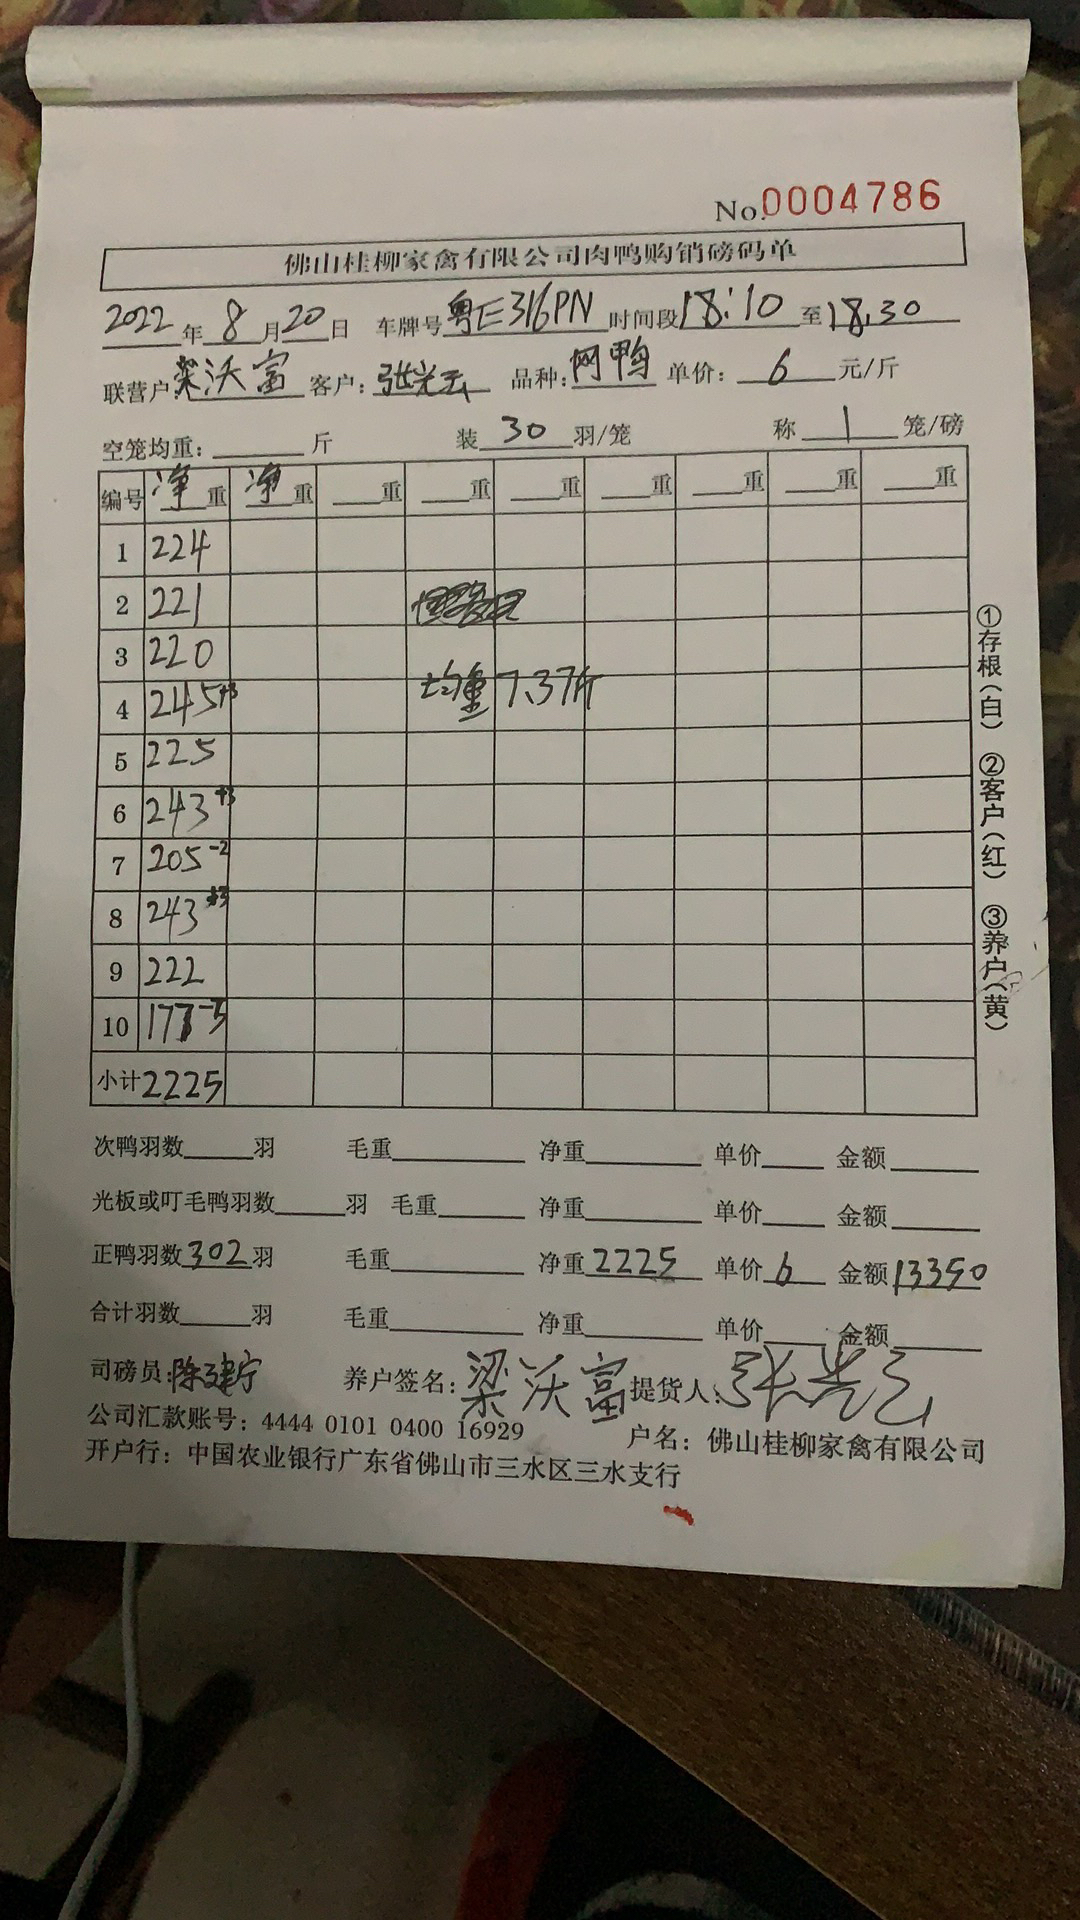 No.0004786
佛山桂柳家禽有限公司肉鸭购销磅码单
2022年8月20日 车牌号粤E316PN 时间段18:10至18:30
联营户:梁沃富 客户:张光云 品种: 单价:6元/斤
空笼均重:斤 装30羽/笼 称1笼/磅
编号 净重 净重 重 重 重 重 重 重 重
1 224
2 221
3 220
4 245+3 均重7.37斤
5 225
6 243+3
7 205-2
8 243+3
9 222
10 177
小计 2225
①存根(白) ②客户(红) ③养户(黄)
次鸭羽数羽 毛重 净重 单价 金额
光板或叮毛鸭羽数羽 毛重 净重 单价 金额
正鸭羽数302羽 毛重 净重2225 单价6 金额13350
合计羽数羽 毛重 净重 单价 金额
司磅员:陈建宁 养户签名:梁沃富 提货人:张光云
公司汇款账号:4444 0101 0400 16929 户名:佛山桂柳家禽有限公司
开户行:中国农业银行广东省佛山市三水区三水支行